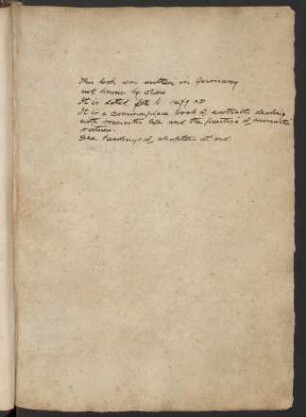 This book was written in Germany
not known by whom
It is dated fol. 1479 AD
It is a commonplace book of extracts dealing
with monastic life and the practice of monastic
virtues.
See of chapters at end